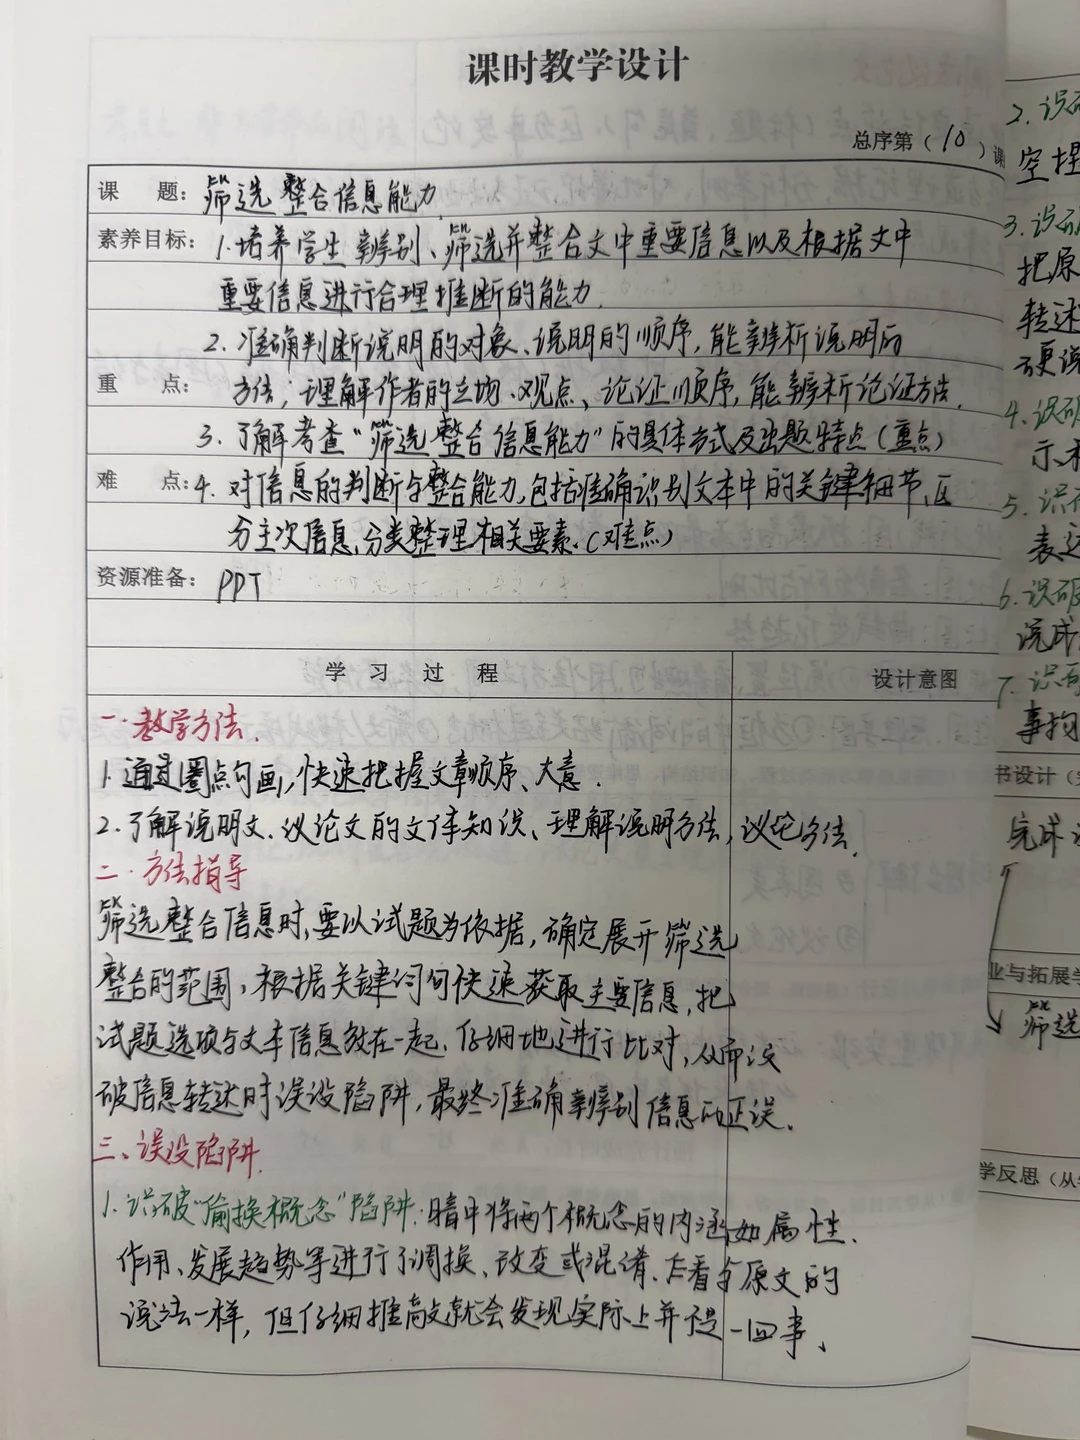 课时教学设计
总序第（10）课
课 题：筛选整合信息能力
素养目标：1.培养学生辨别、筛选并整合文中重要信息以及根据文中
重要信息进行合理推断的能力.
2.准确判断说明的对象、说明的顺序,能辨析说明的
重 点：方法；理解作者的立场、观点、论证顺序,能辨析论证方法.
3.了解考查“筛选整合信息能力”的具体方式及出题特点(重点)
难 点：4.对信息的判断与整合能力,包括准确识别文本中的关键细节、区
分主次信息,分类整理相关要素.(难点)
资源准备：PPT
学 习 过 程 设计意图
一.教学方法.
1.通过圈点勾画,快速把握文章顺序、大意.
2.了解说明文、议论文的文体知识、理解说明方法,议论方法.
二.方法指导
筛选整合信息时,要以试题为依据,确定展开筛选
整合的范围,根据关键词句快速获取主要信息,把
试题选项与文本信息放在一起,仔细地进行比对,从而识
破信息转述时误设陷阱,最终准确辨别信息的正误.
三、误设陷阱.
1.识破“偷换概念”陷阱.暗中将两个概念的内涵如属性、
作用、发展趋势等进行了调换、改变或混淆.乍看与原文的
说法一样,但仔细推敲就会发现实际上并不是一回事、
2.识破
空捏
3.识破
把原
转述
4.识破
示
5.识破
表达
6.识破
完成
7.识破
事均
书设计
完成
业与拓展学
筛选
学反思（从